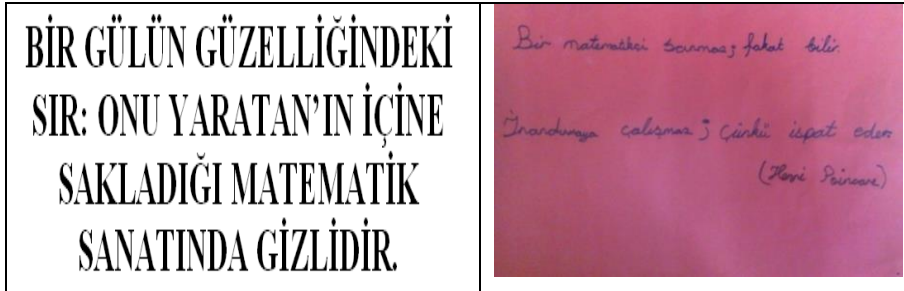 BİR GÜLÜN GÜZELLİĞİNDEKİ
SIR: ONU YARATAN'IN İÇİNE
SAKLADIĞI MATEMATİK
SANATINDA GİZLİDİR.
Bir matematikçi sanmaz; fakat bilir.
İnandırmaya çalışmaz; Çünkü ispat eder.
(Henri Poincare)